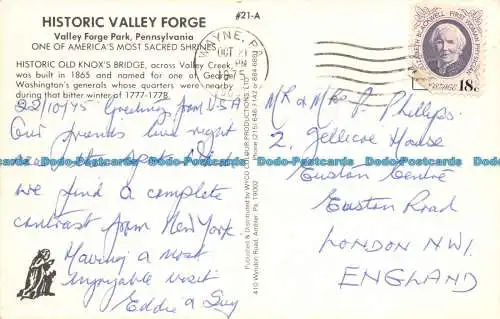 HISTORIC VALLEY FORGE
Valley Forge Park, Pennsylvania
ONE OF AMERICA'S MOST SACRED SHRINES
HISTORIC OLD KNOX'S BRIDGE, across Valley Creek,
was built in 1865 and named for one of George
Washington's generals whose quarters were nearby
during that bitter winter of 1777-1778.
22/10/75 Greetings from U.S.A
Our friends live right
near this
we find a complete
contrast from New York.
Having a most
enjoyable visit
Eddie & Guy
#21-A
WAYNE, PA
OCT 21
PM
1975
ELIZABETH BLACKWELL FIRST WOMAN PHYSICIAN
US POSTAGE 18c
Published & Distributed by WYCO COLOUR PRODUCTIONS
410 Wyndon Road, Ambler, Pa. 19002
Phone (215) 646-7142 or 884-6883
Mr & Mrs J. Phillips
2, Jellicoe House
Euston Centre
Euston Road
LONDON NW1.
ENGLAND